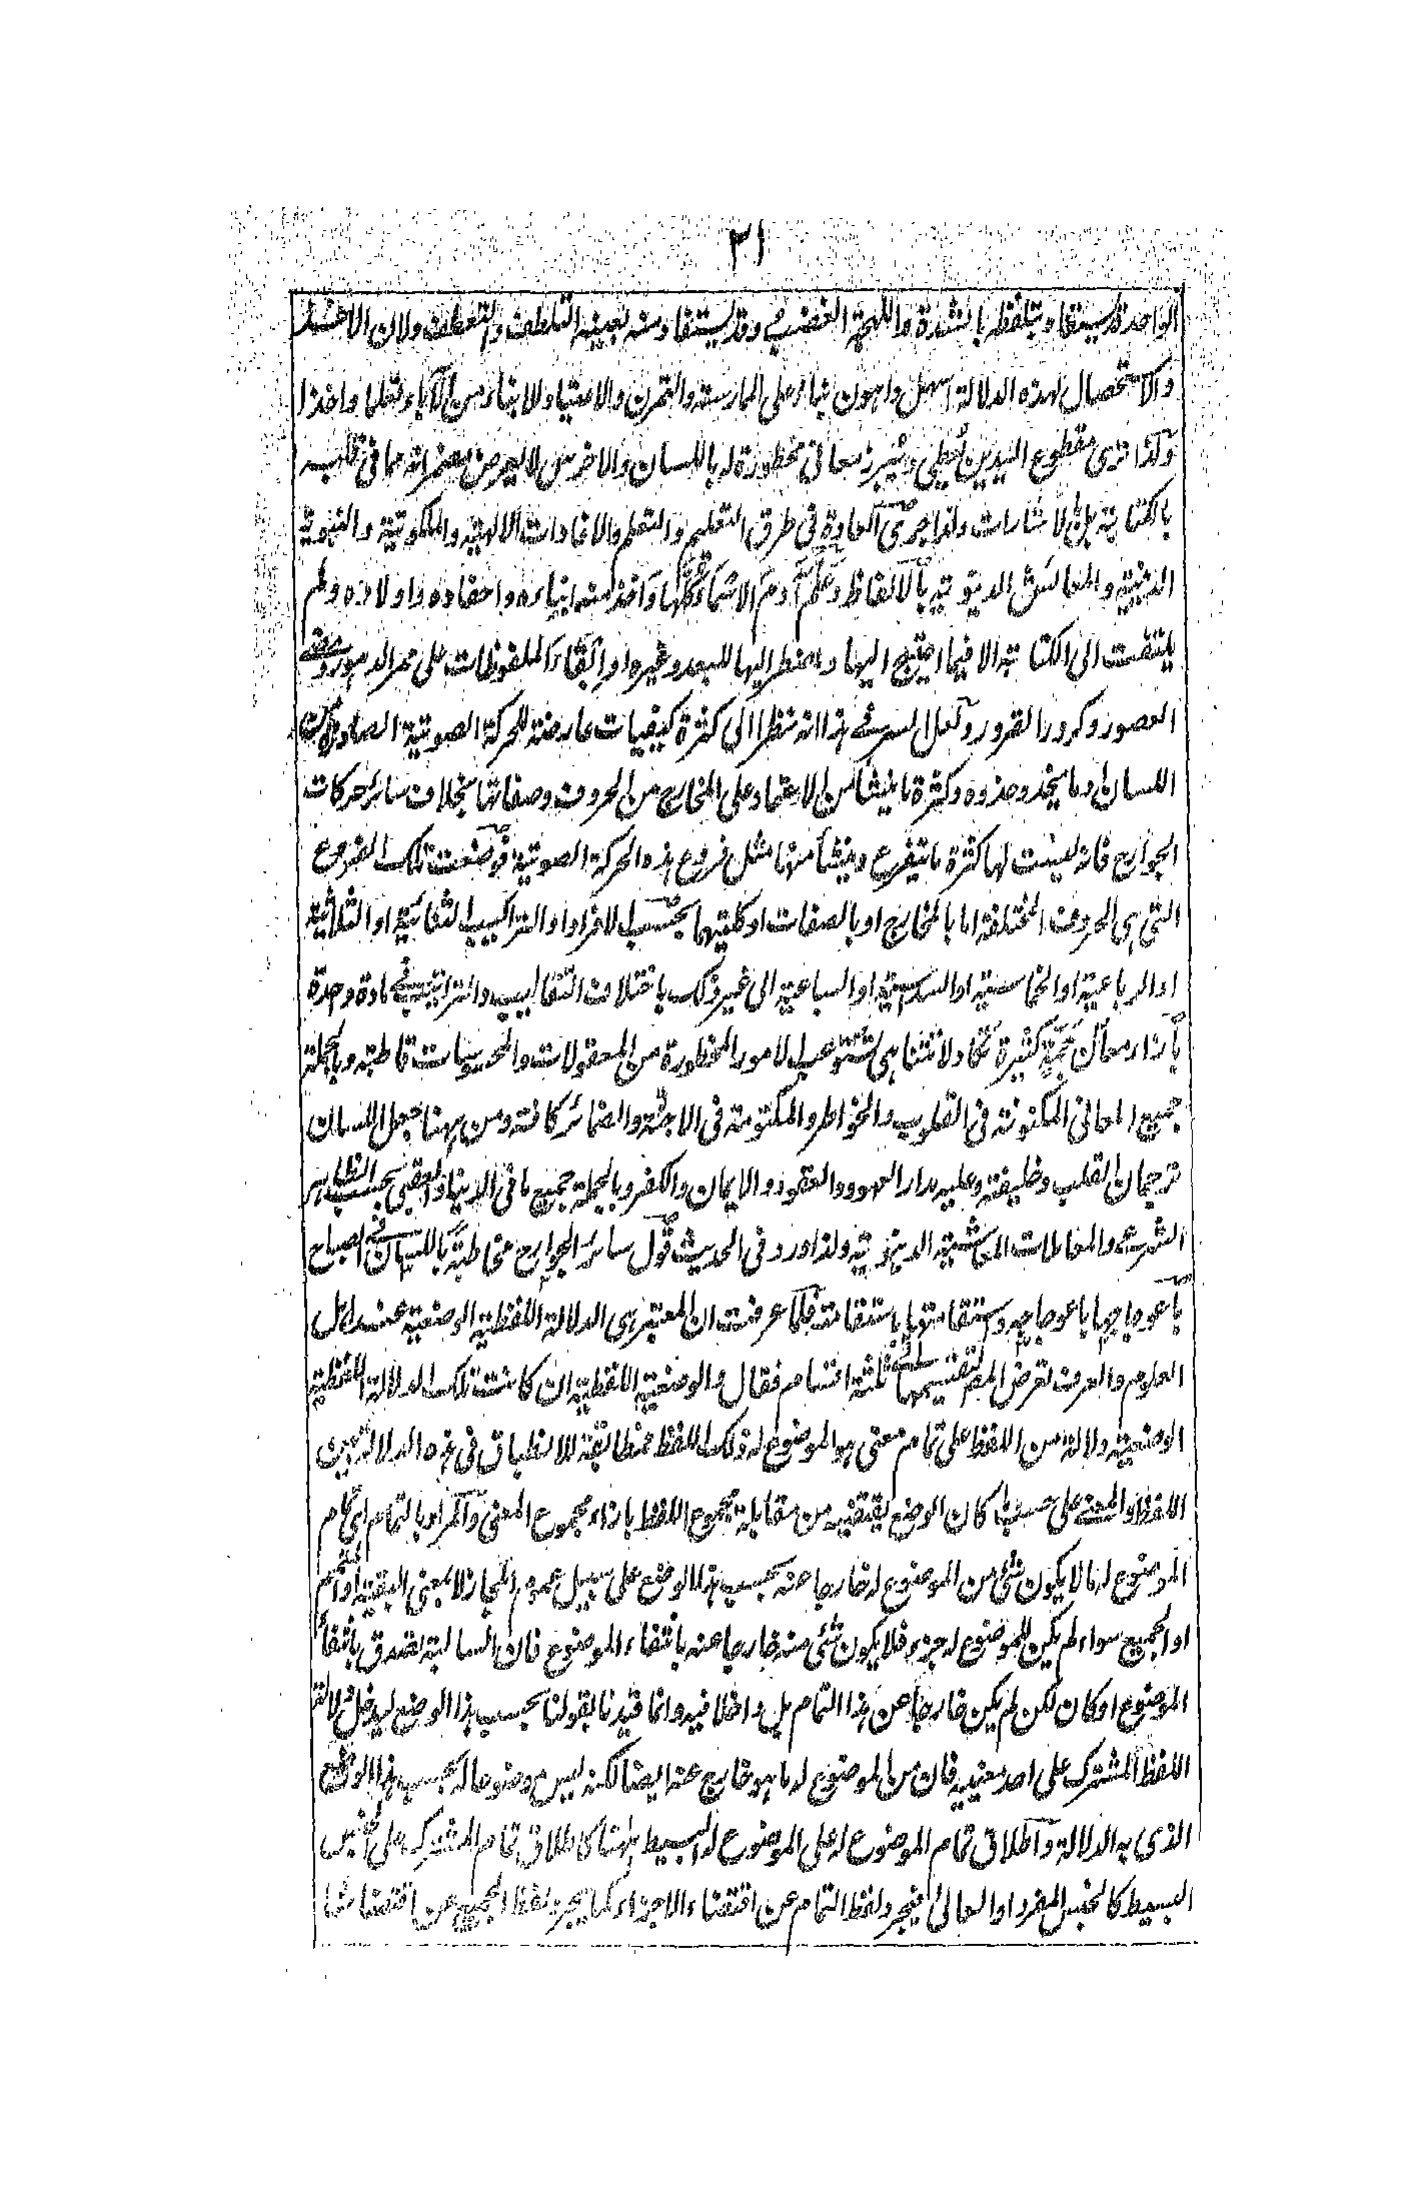 ٢١
الواحدة يستفاد بتلفظه بالشدة واللهجة الغضب وقد يستفاد منه بعينه التلطف والتعطف ولان الاخذ
والاستحصال لهذه الدلالة اسهل واهون بناء على الممارسة والتمرن والاعتياد للابناء من الآباء تعلما واخذا
ولذا ترى مقطوع اليدين يُعطي ويُبرز معاني مخطورة له باللسان والاخرس لا يعبر عن مضمراته مما في قلبه
بالكتابة بل الاشارات ولذا جرى العادة في طرق التعليم والتعلم والافادات الالهية والملكوتية والنبوية
الدينية والمعاش الدنيوية بالالفاظ وعلّم آدم الاسماء كلها واخذ منه ابناءه واحفاده واولاده ولم
يلتفت الى الكتابة الا فيما احتيج اليها واضطر اليها للبعد وغيره او ابقاء الملفوظات على ممر الدهور
العصور وكرور القرور ولعل السر في هذا انه نظرا الى كثرة كيفيات عارضة للحركة الصوتية الصادرة من
اللسان وما يحذو حذوه وكثرة ما ينشأ من الاعتماد على المخارج من الحروف وصفاتها بخلاف سائر حركات
الجوارح فانه ليست لها كثرة ما يتفرع وينشأ منها مثل فروع هذه الحركة الصوتية فوضعت تلك الفروع
التي هي الحروف المختلفة اما بالمخارج او بالصفات او كليهما بحسب الافراد او التراكيب الثنائية او الثلاثية
او الرباعية او الخماسية او السداسية او السباعية الى غير ذلك باختلاف التقاليب والتراتيب في مادة واحدة
بازاء معان جمّة كثيرة تكاد لا تتناهى تستوعب الامور المخطورة من المعقولات والمحسوسات قاطبة وبالجملة
جميع المعاني المكنونة في القلوب والخواطر والمكتومة في الاجنة والضمائر كافة ومن ههنا جعل اللسان
ترجمان القلب وخليفته وعليه مدار العهود والعقود والايمان والكفر وبالجملة جميع ما في الدنيا والعقبى بحسب الظاهر
الشرع والمعاملات المعاشية الدنيوية ولذا ورد في الحديث قول سائر الجوارح مخاطبة باللسان في الصباح
باعوجاجها باعوجاجه واستقامتها باستقامته فلما عرفت ان المعتبر هي الدلالة اللفظية الوضعية عند اهل
العلوم والعرف تعرض المص لتقسيمها الى ثلثة اقسام فقال والوضعية اللفظية ان كانت تلك الدلالة اللفظية
الوضعية دلالة من اللفظ على تمام معنى هو الموضوع له ذلك اللفظ فمطابقة للانطباق في هذه الدلالة بين
اللفظ والمعنى على حسب ما كان الوضع يقتضيه من مقابلة مجموع اللفظ بازاء مجموع المعنى والمراد بالتمام اي تمام
الموضوع له ما لا يكون شئ من الموضوع له خارجا عنه بحسب هذا الوضع على سبيل عموم المجاز لا بمعنى البقية
او الجميع سواء لم يكن للموضوع له جزء فلا يكون شئ منه خارجا عنه بانتفاء الموضوع فان السالبة تصدق بانتفاء
الموضوع او كان لكن لم يكن خارجا عن هذا التمام بل داخلا فيه وانما قيدنا بقولنا بحسب هذا الوضع ليدخل دلالة
اللفظ المشترك على احد معنييه فان من الموضوع له ما هو خارج عنه ايضا لكنه ليس موضوعا له بحسب هذا الوضع
الذي به الدلالة واطلاق تمام الموضوع له على الموضوع له البسيط ههنا كاطلاق تمام المشترك على الجنس
البسيط كالجنس المفرد او العالي فيجرد لفظ التمام عن اقتضاء الاجزاء كما يجرد لفظ الجميع عن اقتضائها